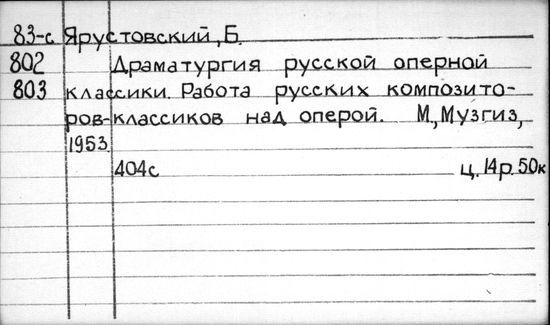 83-с Ярустовский, Б.
802 Драматургия русской оперной
803 классики. Работа русских композито-
ров-классиков над оперой. М., Музгиз,
1953.
404с ц. 14р. 50к